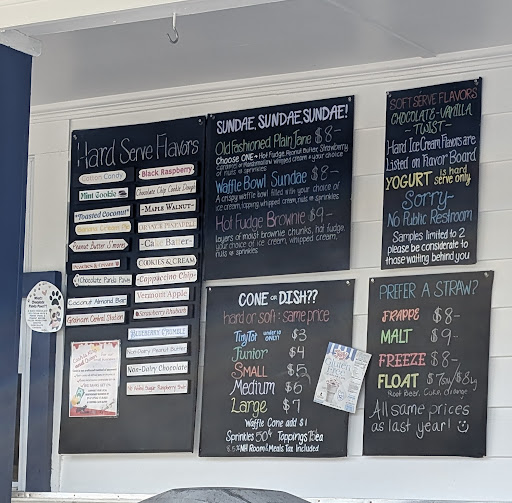 Hard Serve Flavors
Cotton Candy
Mint Cookie
Toasted Coconut
Peanut Butter S'mores
Chocolate Panda Paws
Coconut Almond Bar
Graham Central Station
Black Raspberry
Chocolate Chip Cookie Dough
Maple Walnut
Orange Pineapple
Cake Batter
Cookies & Cream
Cappuccino Chip
Vermont Apple
Strawberry Rhubarb
Blueberry Crumble
Non-Dairy Peanut Butter
Non-Dairy Chocolate
SUNDAE, SUNDAE, SUNDAE!
Old Fashioned Plain Jane $8-
CHOOSE ONE → Hot Fudge, Peanut Butter, Strawberry
whipped cream & your choice
of nuts or sprinkles
Waffle Bowl Sundae $8-
A crispy waffle bowl filled with your choice of
ice cream, topping, whipped cream, nuts or sprinkles
Hot Fudge Brownie $9-
layers of moist brownie chunks, hot fudge,
your choice of ice cream, whipped cream,
nuts or sprinkles
CONE OR DISH??
hard or soft: same price
TinyTot under 10 ONLY! $3
Junior $4
SMALL $5
Medium $6
Large $7
Waffle Cone add $1
Sprinkles 50¢ Toppings
NH Room & Meals Tax Included
SOFT SERVE FLAVORS
CHOCOLATE-VANILLA
- TWIST -
Hard Ice Cream Flavors are
Listed on Flavor Board
YOGURT is hard serve only
Sorry-
No Public Restroom
Samples limited to 2
please be considerate to
those waiting behind you
PREFER A STRAW?
FRAPPE $8-
MALT $9-
FREEZE $8-
FLOAT $7sm/$8lg
Root Beer, Cola, Orange
All same prices
as last year!